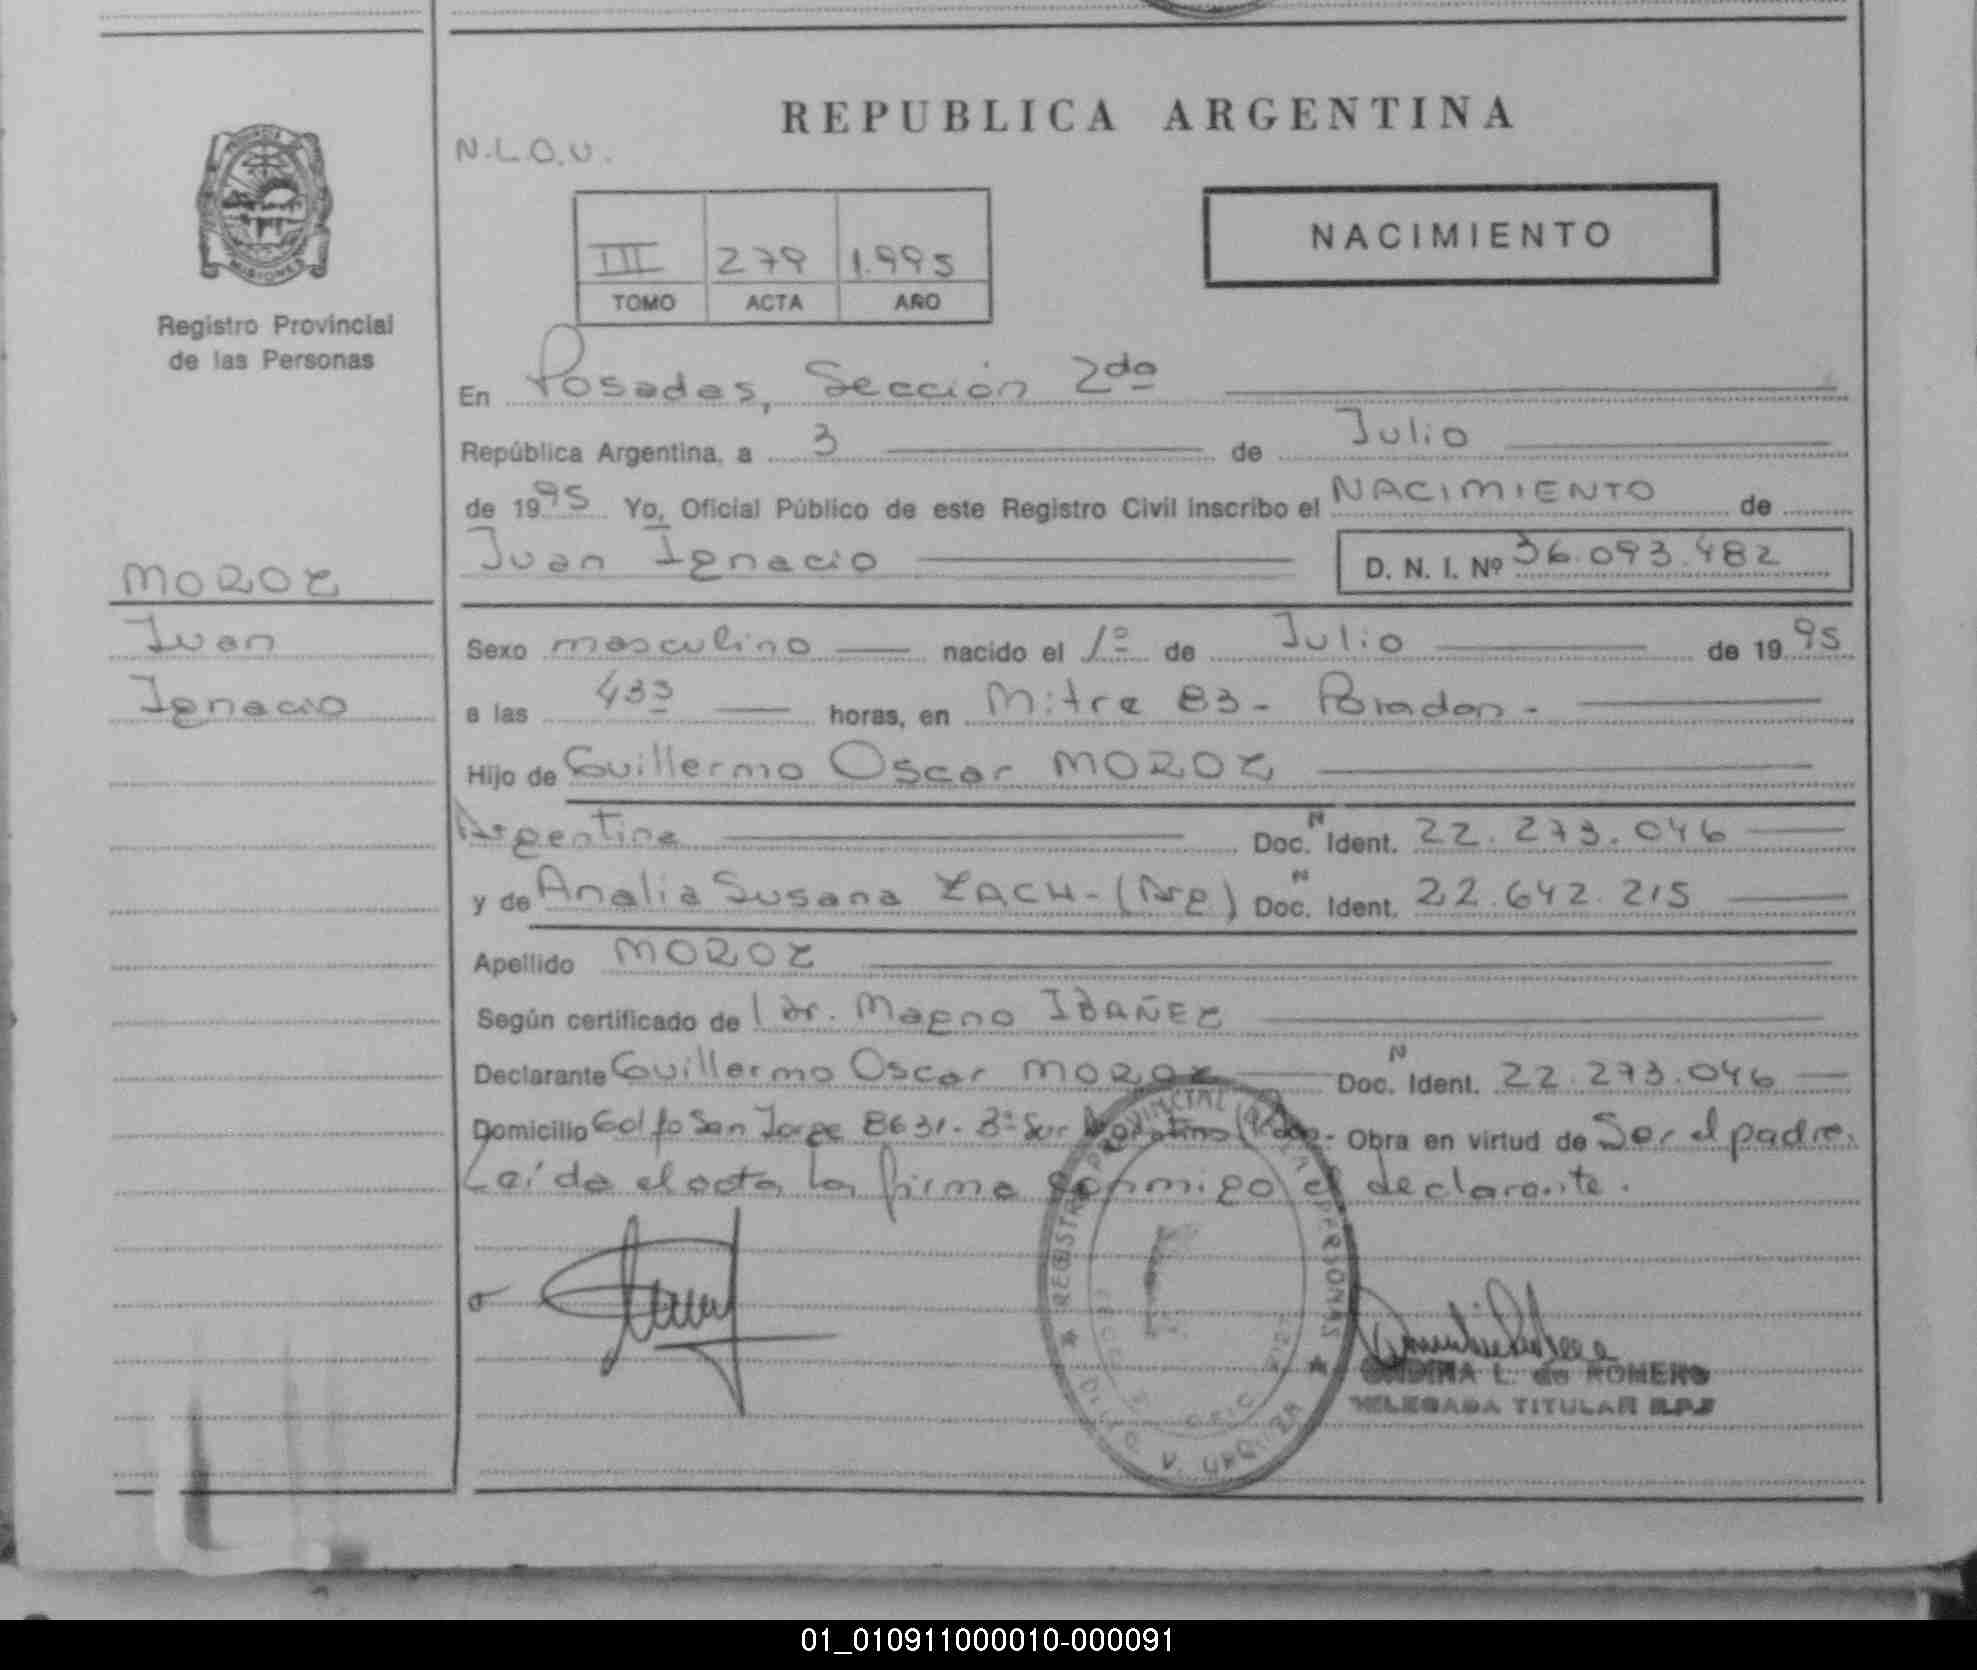 REPUBLICA ARGENTINA
N.L.O.U.
NACIMIENTO
III 279 1.995
TOMO ACTA AÑO
MISIONES
Registro Provincial
de las Personas
En Posadas, Sección 2da
República Argentina, a 3 de Julio
de 1995 Yo, Oficial Público de este Registro Civil inscribo el NACIMIENTO de
Juan Ignacio D. N. I. Nº 36.093.482
MOROZ
Juan
Ignacio
Sexo masculino nacido el 1º de Julio de 1995
a las 4 35 horas, en Mitre 83 - Posadas -
Hijo de Guillermo Oscar MOROZ
Argentina Doc. N Ident. 22.273.046
y de Analia Susana ZACH - (Arg) Doc. N Ident. 22.642.215
Apellido MOROZ
Según certificado de l Dr. Magno IBAÑEZ
Declarante Guillermo Oscar MOROZ Doc. N Ident. 22.273.046
Domicilio Golfo San Jorge 8631 - Bº Sur Argentino Obra en virtud de Ser el padre.
Leída el acta la firma conmigo el declarante.
REGISTRO PROVINCIAL DE LAS PERSONAS
ONDINA L. de ROMERO
DELEGADA TITULAR R.P.P
01_010911000010-000091